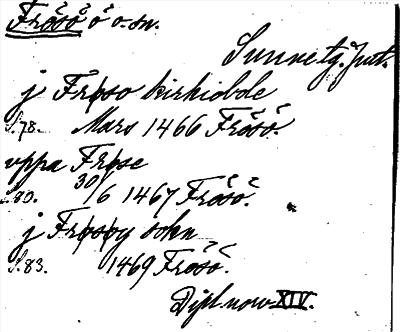 Frösö ö o sn.
Sunne tg. Jmt.
j Frøso kirkiobole
S.78. Mars 1466 Frösö.
vppa Frøse
S.80. 30/6 1467 Frösö.
j Frøsøy sokn
S.83. 1469 Frösö.
Dipl. norv. XIV.